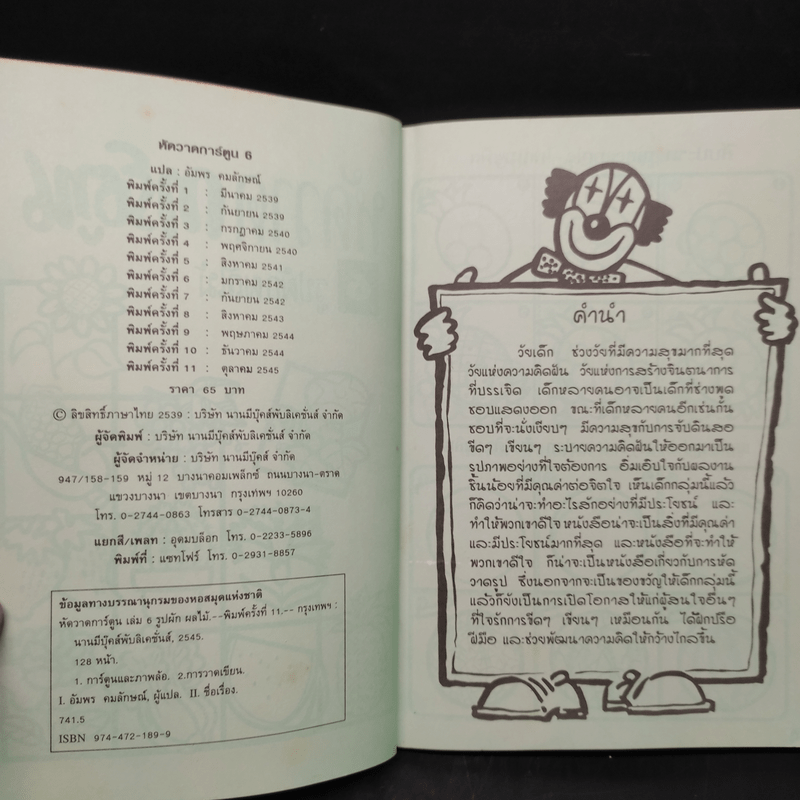 หัดวาดการ์ตูน 6
แปล : อัมพร คมลักษณ์
พิมพ์ครั้งที่ 1 : มีนาคม 2539
พิมพ์ครั้งที่ 2 : กันยายน 2539
พิมพ์ครั้งที่ 3 : กรกฎาคม 2540
พิมพ์ครั้งที่ 4 : พฤศจิกายน 2540
พิมพ์ครั้งที่ 5 : สิงหาคม 2541
พิมพ์ครั้งที่ 6 : มกราคม 2542
พิมพ์ครั้งที่ 7 : กันยายน 2542
พิมพ์ครั้งที่ 8 : สิงหาคม 2543
พิมพ์ครั้งที่ 9 : พฤษภาคม 2544
พิมพ์ครั้งที่ 10 : ธันวาคม 2544
พิมพ์ครั้งที่ 11 : ตุลาคม 2545
ราคา 65 บาท
© ลิขสิทธิ์ภาษาไทย 2539 : บริษัท นานมีบุ๊คส์พับลิเคชั่นส์ จำกัด
ผู้จัดพิมพ์ : บริษัท นานมีบุ๊คส์พับลิเคชั่นส์ จำกัด
ผู้จัดจำหน่าย : บริษัท นานมีบุ๊คส์พับลิเคชั่นส์ จำกัด
947/158-159 หมู่ 12 บางนาคอมเพล็กซ์ ถนนบางนา-ตราด
แขวงบางนา เขตบางนา กรุงเทพฯ 10260
โทร. 0-2744-0863 โทรสาร 0-2744-0873-4
แยกสี/เพลท : อุดมบล็อก โทร. 0-2233-5896
พิมพ์ที่ : แซทโฟร์ โทร. 0-2931-8857
ข้อมูลทางบรรณานุกรมของหอสมุดแห่งชาติ
หัดวาดการ์ตูน เล่ม 6 รูปผัก ผลไม้.--พิมพ์ครั้งที่ 11.-- กรุงเทพฯ :
นานมีบุ๊คส์พับลิเคชั่นส์, 2545.
128 หน้า.
1. การ์ตูนและภาพล้อ. 2.การวาดเขียน.
I. อัมพร คมลักษณ์, ผู้แปล. II. ชื่อเรื่อง.
741.5
ISBN 974-472-189-9
คำนำ
วัยเด็ก ช่วงวัยที่มีความสุขมากที่สุด
วัยแห่งความคิดฝัน วัยแห่งการสร้างจินตนาการ
ที่บรรเจิด เด็กหลายคนอาจเป็นเด็กที่ช่างพูด
ชอบแสดงออก ขณะที่เด็กหลายคนอีกเช่นกัน
ชอบที่จะนั่งเงียบๆ มีความสุขกับการจับดินสอ
ขีดๆ เขียนๆ ระบายความคิดฝันให้ออกมาเป็น
รูปภาพอย่างที่ใจต้องการ อิ่มเอิบใจกับผลงาน
ชิ้นน้อยที่มีคุณค่าต่อจิตใจ เห็นเด็กกลุ่มนี้แล้ว
ก็คิดว่าน่าจะทำอะไรสักอย่างที่มีประโยชน์ และ
ทำให้พวกเขาดีใจ หนังสือน่าจะเป็นสิ่งที่มีคุณค่า
และมีประโยชน์มากที่สุด และหนังสือที่จะทำให้
พวกเขาดีใจ ก็น่าจะเป็นหนังสือเกี่ยวกับการหัด
วาดรูป ซึ่งนอกจากจะเป็นของขวัญให้เด็กกลุ่มนี้
แล้วก็ยังเป็นการเปิดโอกาสให้แก่ผู้สนใจอื่นๆ
ที่ใจรักการขีดๆ เขียนๆ เหมือนกัน ได้ฝึกปรือ
ฝีมือ และช่วยพัฒนาความคิดให้กว้างไกลขึ้น